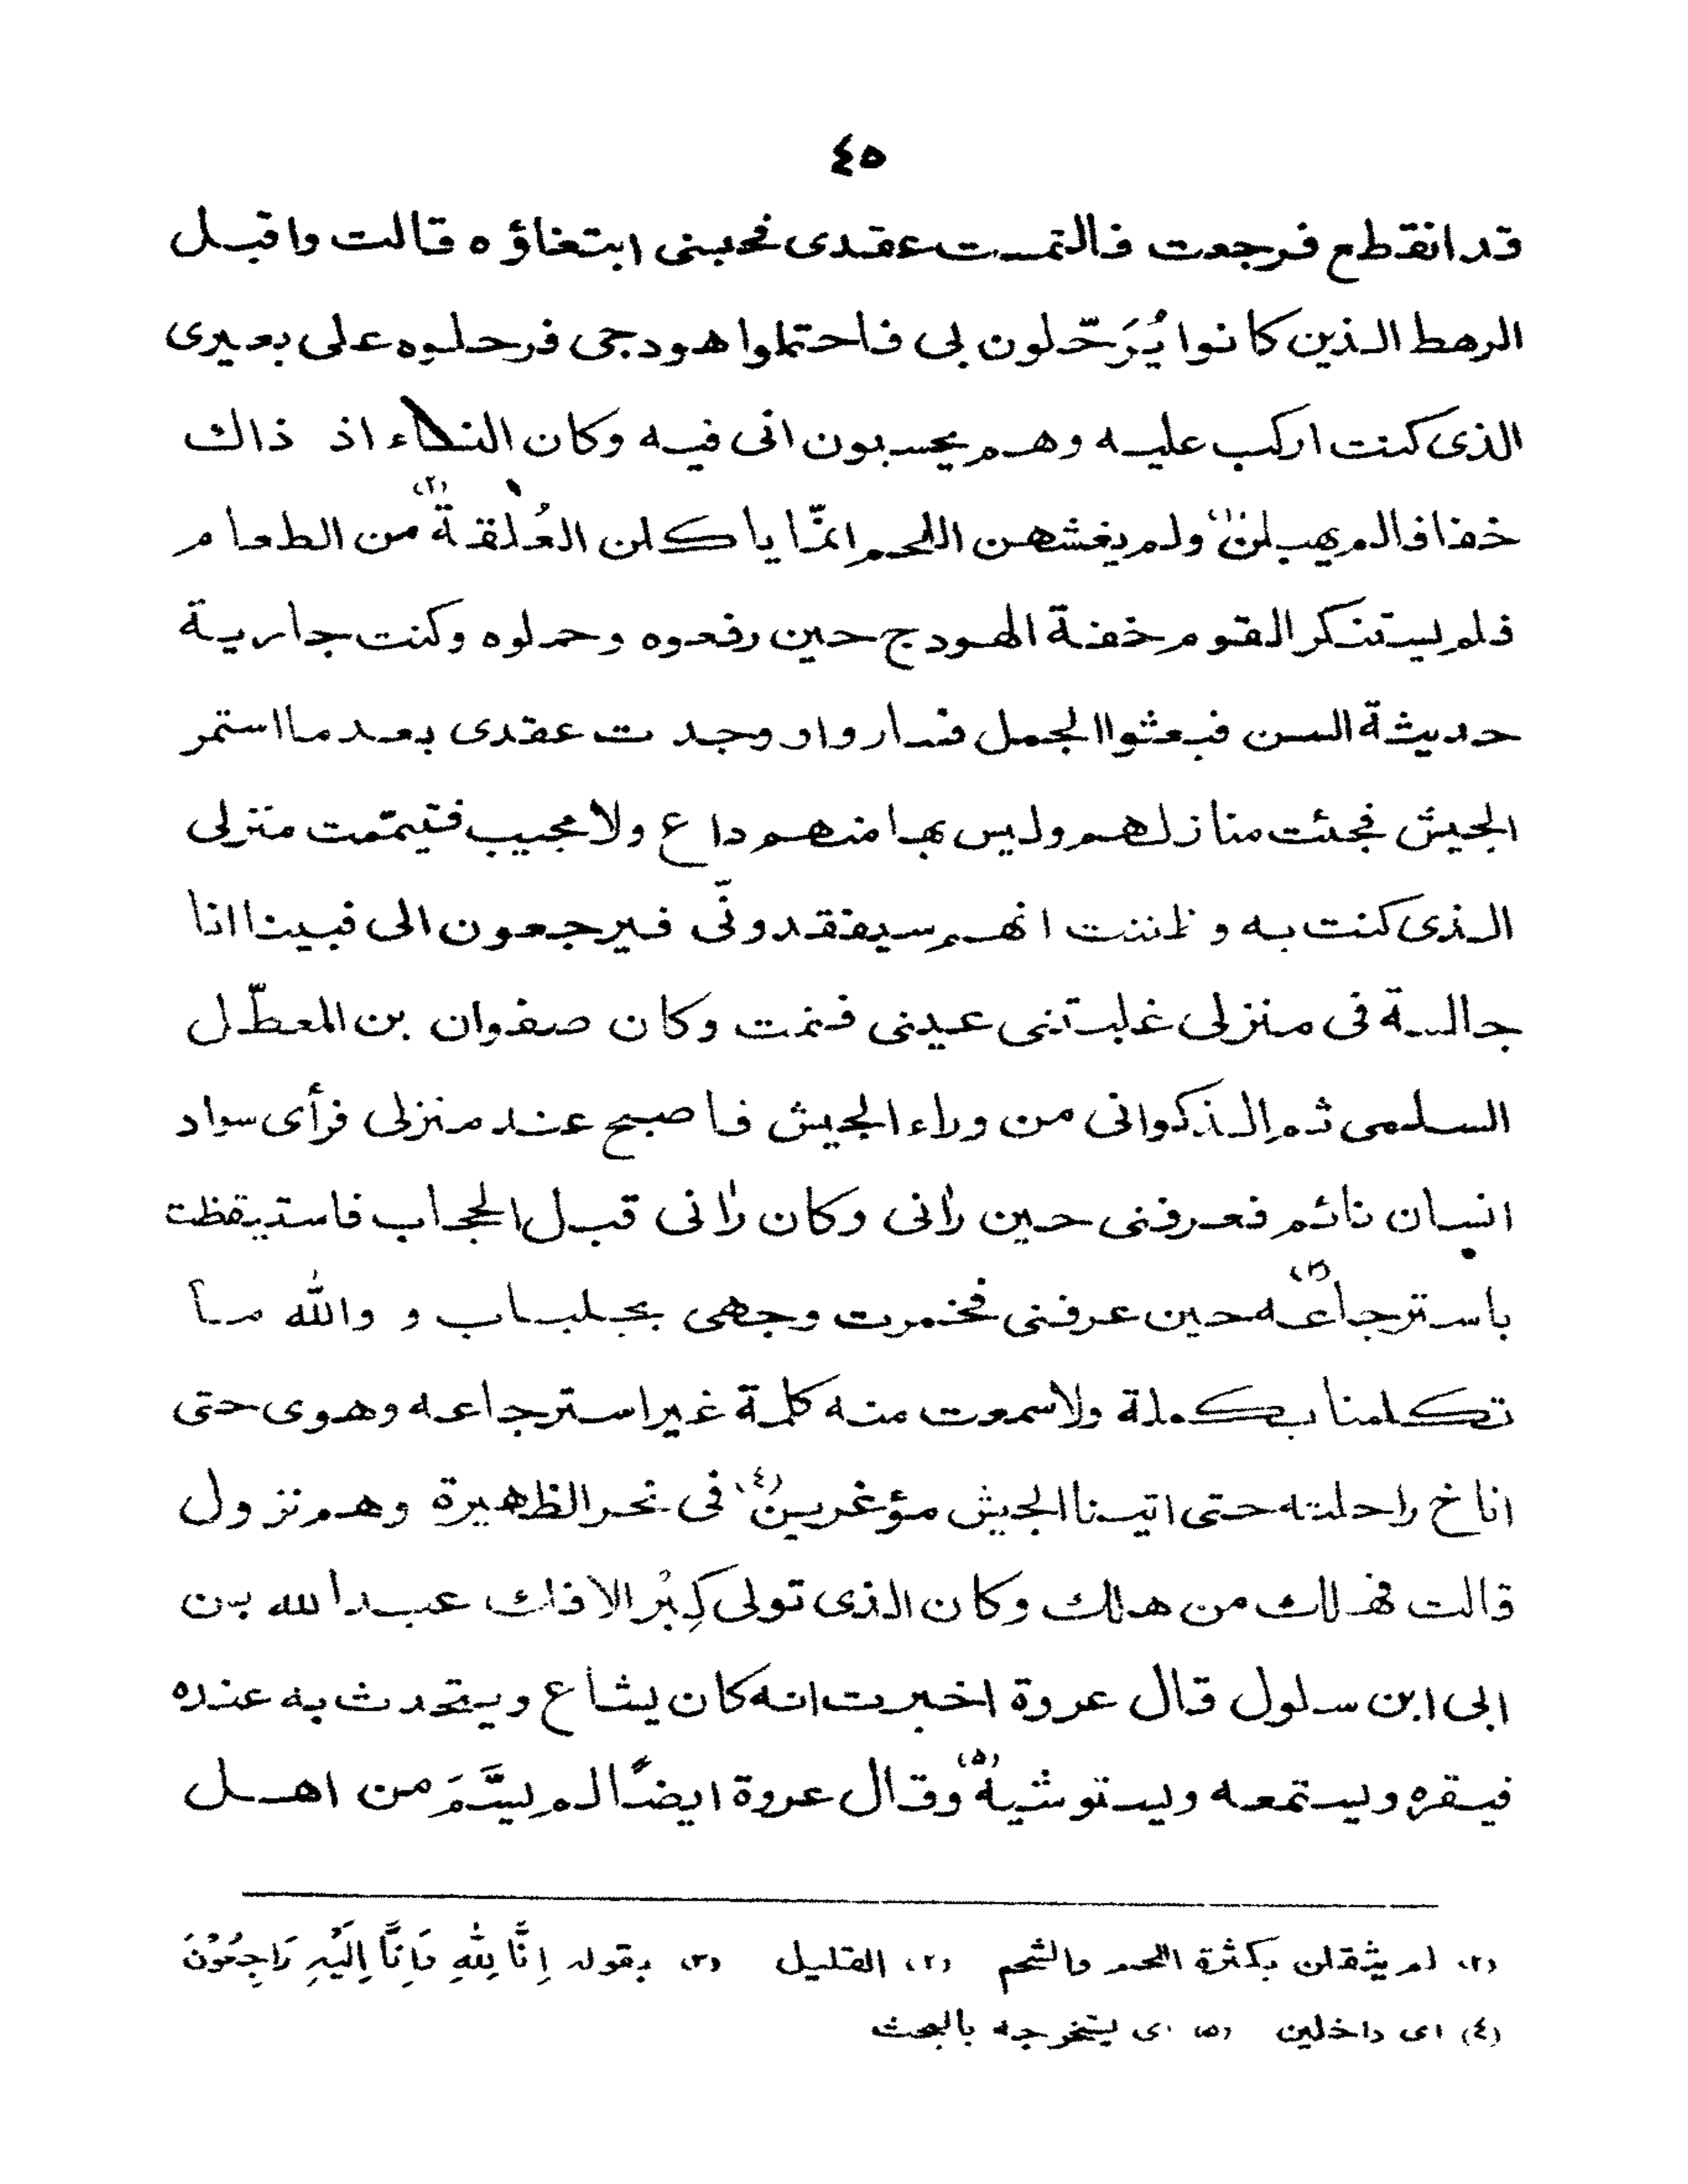 ٤٥
قد انقطع فرجعت فالتمست عقدى فحبسنى ابتغاؤه قالت واقبل
الرهط الذين كانوا يُرَحّلون بى فاحتملوا هودجى فرحلوه على بعيرى
الذى كنت اركب عليه وهم يحسبون انى فيه وكان النساء اذ ذاك
خفافا لم يهبلن(١) ولم يغشهن اللحم انمّا ياكلن العُلقة(٢) من الطعام
فلم يستنكر القوم خفة الهودج حين رفعوه وحملوه وكنت جارية
حديثة السن فبعثوا الجمل فساروا ووجدت عقدى بعد ما استمر
الجيش فجئت منازلهم وليس بها منهم داع ولا مجيب فتيمّمت منزلى
الذى كنت به وظننت انهم سيفقدونّى فيرجعون الى فبينا انا
جالسة فى منزلى غلبتنى عينى فنمت وكان صفوان بن المعطّل
السلمى ثم الذكوانى من وراء الجيش فاصبح عند منزلى فرأى سواد
انسان نائم فعرفنى حين رٰانى وكان رٰانى قبل الحجاب فاستيقظت
باسترجاعه(٣) حين عرفنى فخمرت وجهى بجلباب و والله مـا
تكلمنا بكلمة ولا سمعت منه كلمة غير استرجاعه وهوى حتى
اناخ راحلته حتى اتينا الجيش مؤغرين(٤) فى نحر الظهيرة وهم نزول
قالت فهلك من هلك وكان الذى تولى كِبْر الافك عبد الله بن
ابى ابن سلول قال عروة اخبرت انه كان يشاع ويتحدث به عنده
فيقره ويستمعه ويستوشيه(٥) وقال عروة ايضًا لم يسَّمَ من اهل
(٢) لم يثقلن بكثرة اللحم والشحم (٢) القليل (٣) بقوله اِنَّا لِلّٰهِ وَاِنَّا اِلَيْهِ رَاجِعُوْنَ
(٤) اى داخلين (٥) اى يستخرجه بالبحث